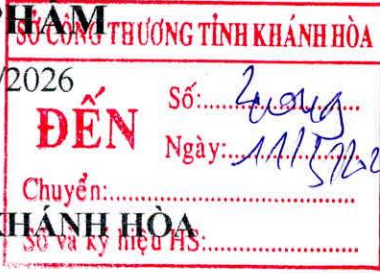 PHẨM
SỞ CÔNG THƯƠNG TỈNH KHÁNH HÒA
/2026
ĐẾN
Số:
Ngày: 11/
Chuyển:
KHÁNH HÒA
Số và ký hiệu HS: